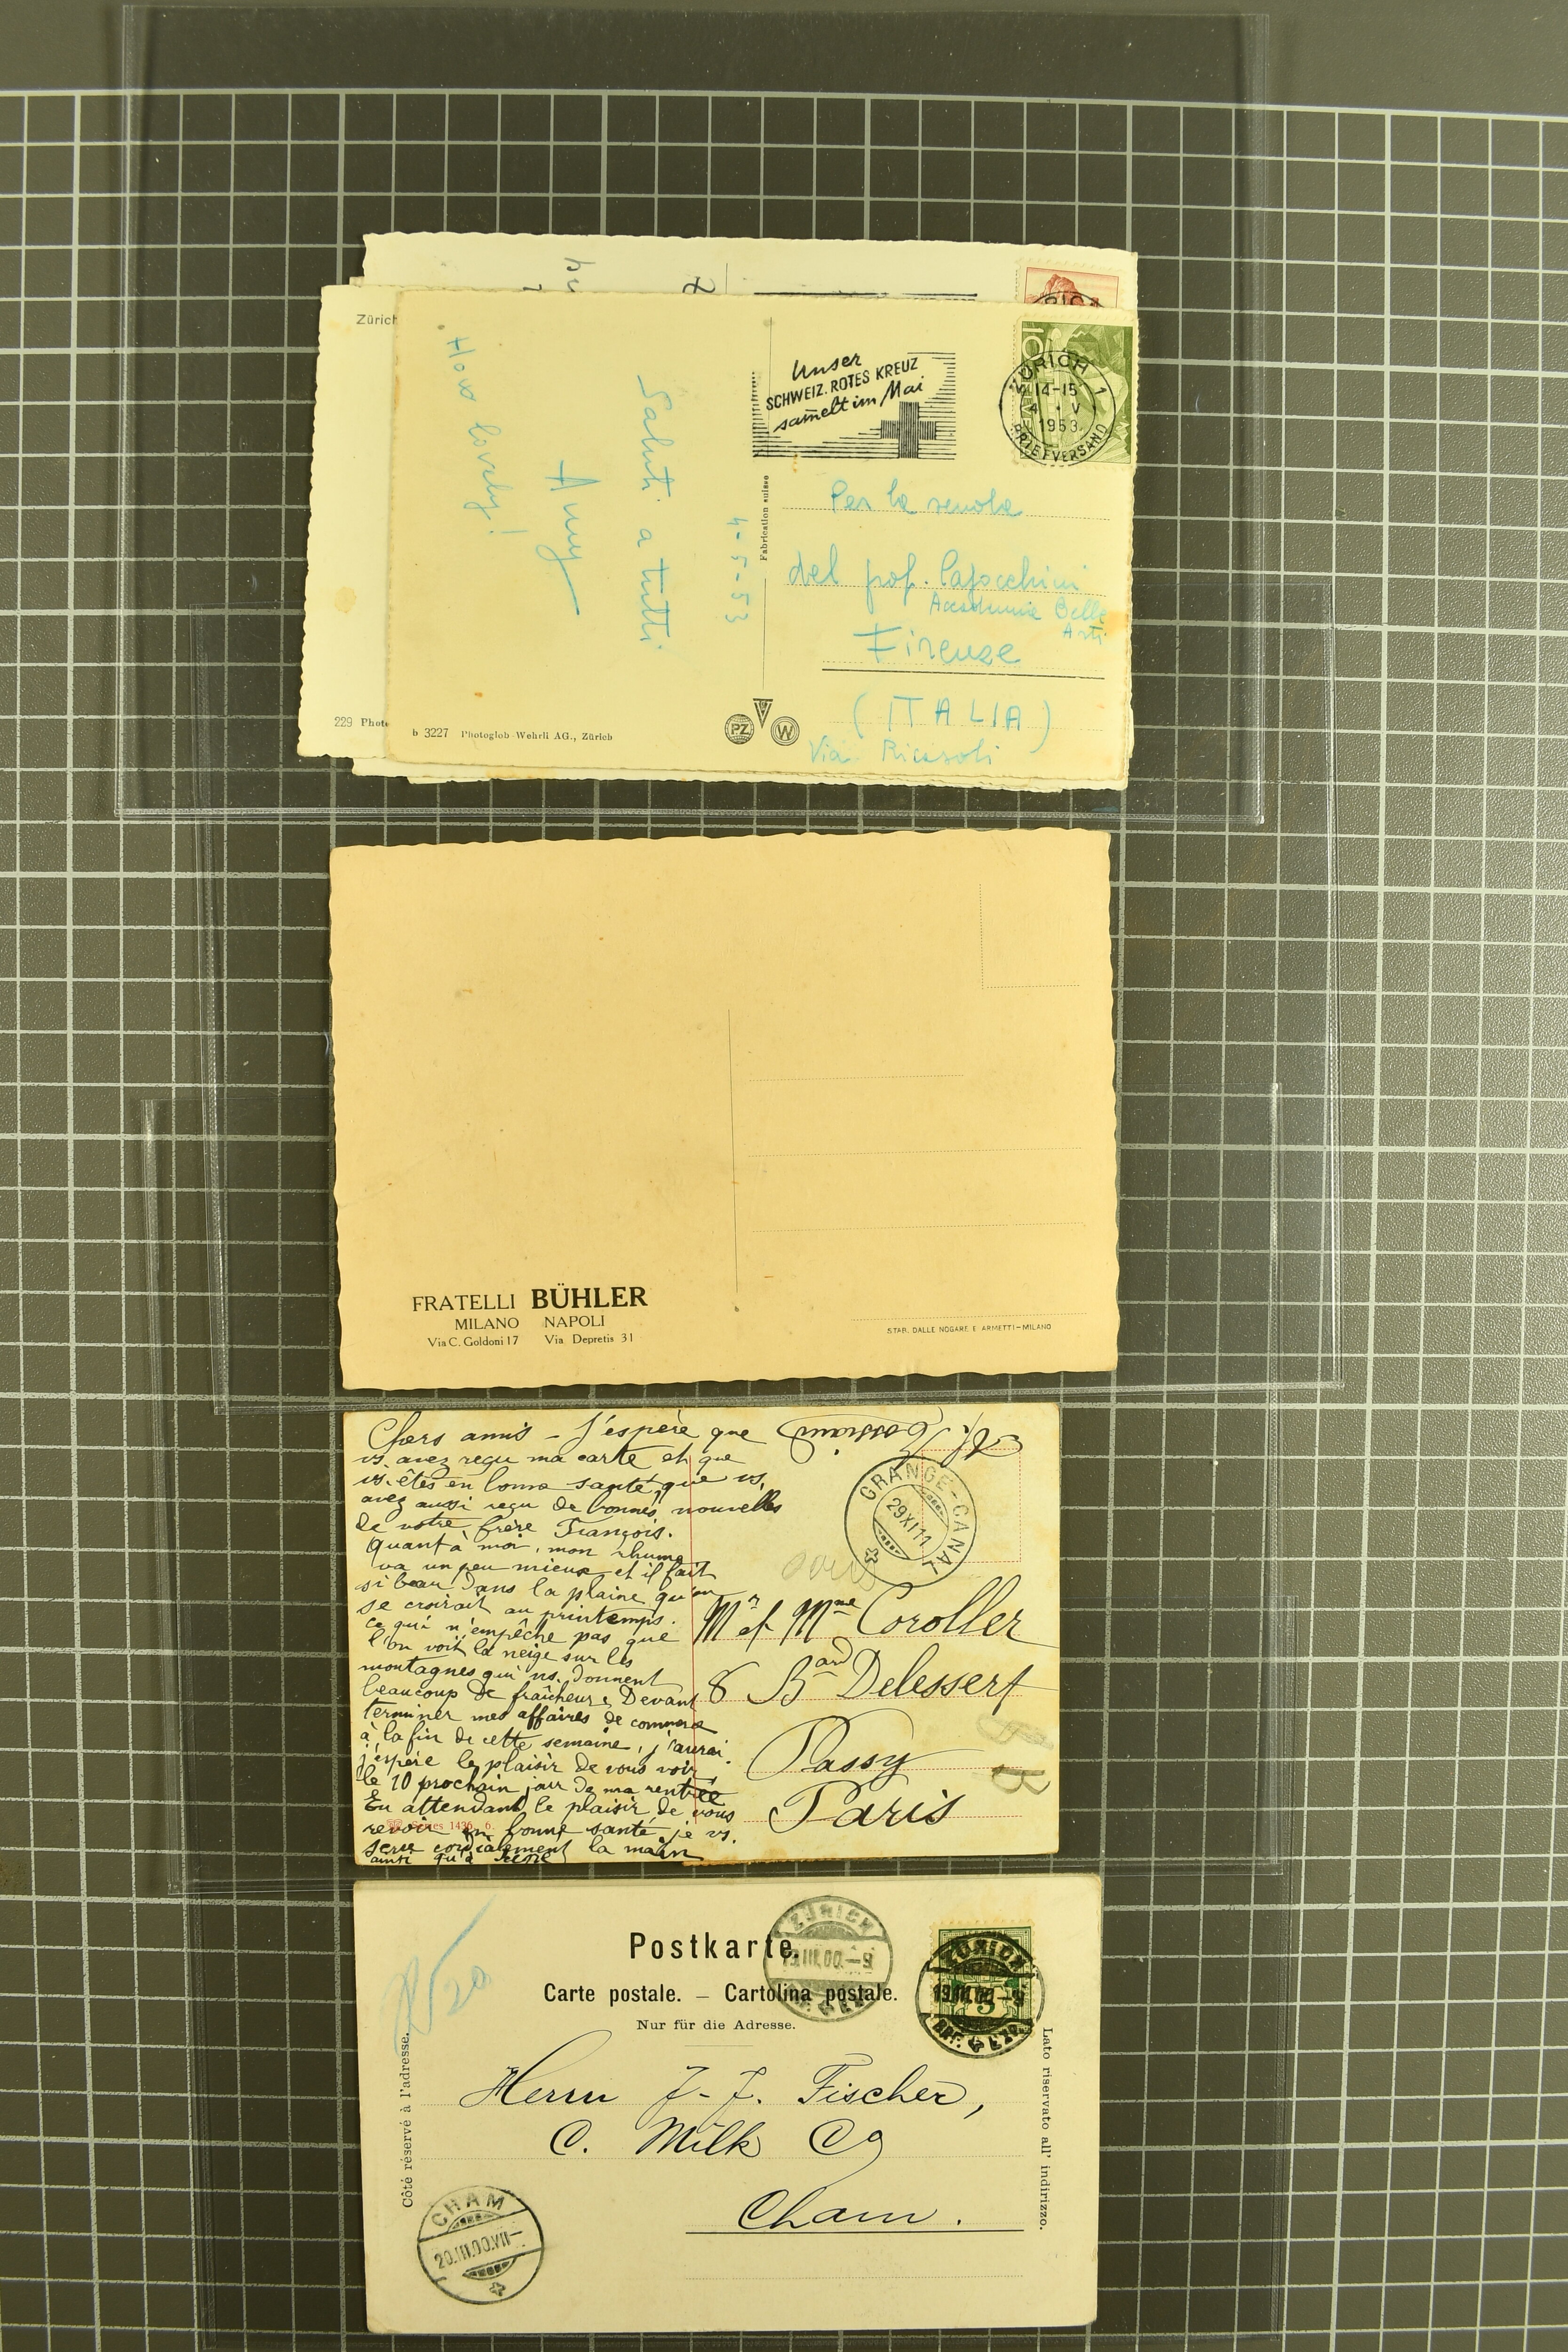 Zürich
229 Photo
ZÜRICH 1
14-15
4 . V
1953
BRIEFVERSAND
10
Unser
SCHWEIZ. ROTES KREUZ
sam̄elt im Mai
How lovely!
Amy
Saluti a tutti
4-5-53
Fabrication suisse
Per la scuola
del prof.
Accademia Belle
Arti
Firenze
(ITALIA)
Via Ricasoli
b 3227 Photoglob-Wehrli AG., Zürich
PZ
W
FRATELLI BÜHLER
MILANO NAPOLI
Via C. Goldoni 17 Via Depretis 31
STAB. DALLE NOGARE E ARMETTI-MILANO
Chers amis - J'espère que
vs. avez reçu ma carte et que
vs. êtes en bonne santé, que vs,
avez aussi reçu de bonnes nouvelles
de votre frère François.
Quant à moi, mon rhume
va un peu mieux et il fait
si beau dans la plaine qu'on
se croirait au printemps.
ce qui n'empêche pas que
l'on voit la neige sur les
montagnes qui ns. donnent
beaucoup de fraîcheur. Devant
terminer mes affaires de commerce
à la fin de cette semaine, j'aurai
j'espère le plaisir de vous voir
le 10 prochain jour de ma rentrée
En attendant le plaisir de vous
revoir en bonne santé, je vs.
serre cordialement la main
ainsi qu'à
Séries 1436. 6.
GRANGE-CANAL
29 XI 11
Mr et Mme Coroller
8 Bard Delessert
Passy
Paris
Postkarte.
Carte postale. – Cartolina postale.
Nur für die Adresse.
Côté réservé à l'adresse.
Lato riservato all' indirizzo.
ZÜRICH
19.III.00.–9
ZÜRICH
19.III.00–9
BRF. EXP.
5
Herrn J. J. Fischer,
C. Milk Co
Cham.
CHAM
20.III.00.VII–